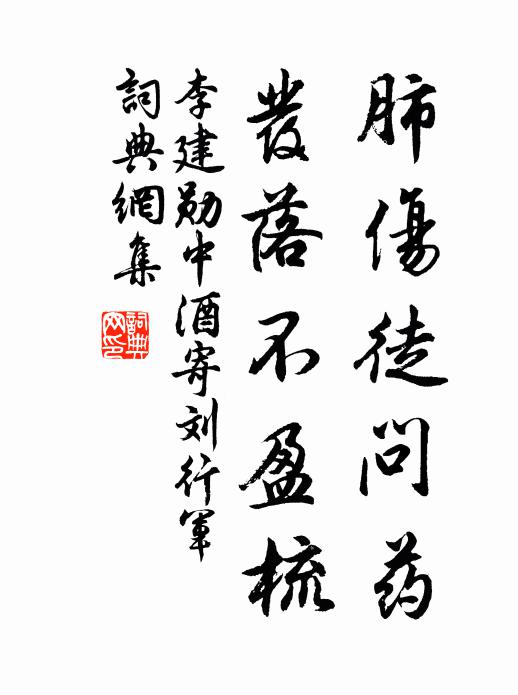 肺傷徒问药
發落不盈梳
李建勋中酒寄刘行軍
詞典網集
詞典
网印